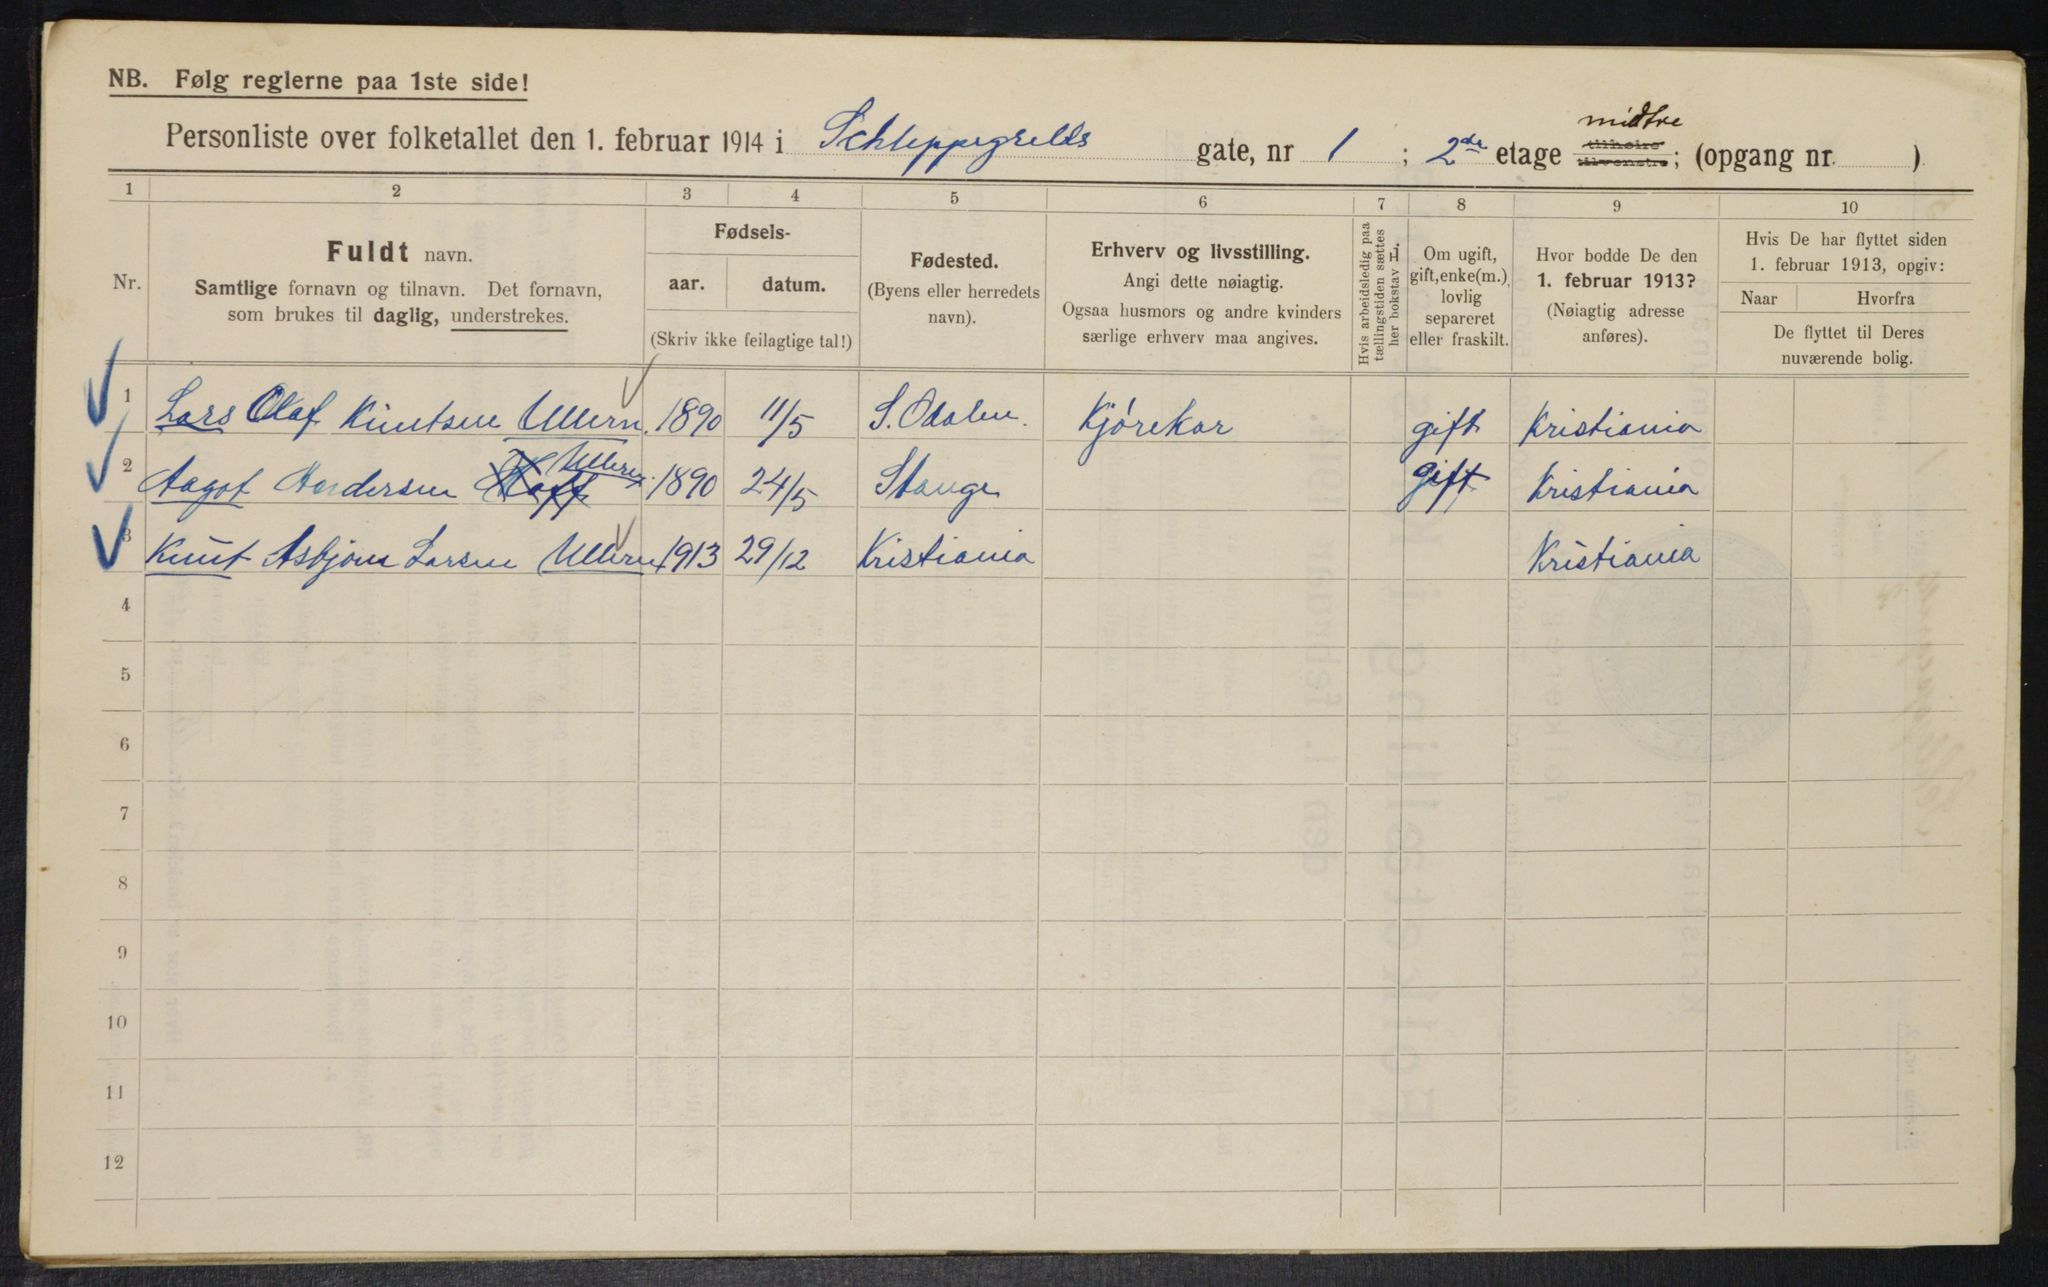 NB. Følg reglerne paa 1ste side!
midtre
Personliste over folketallet den 1. februar 1914 i Schleppegrells gate, nr 1 ; 2den etage tilhøire tilvenstre; (opgang nr. )
1 2 3 4 5 6 7 8 9 10
Nr.
Fuldt navn.
Samtlige fornavn og tilnavn. Det fornavn,
som brukes til daglig, understrekes.
Fødsels-
aar. datum.
(Skriv ikke feilagtige tal!)
Fødested.
(Byens eller herredets
navn).
Erhverv og livsstilling.
Angi dette nøiagtig.
Ogsaa husmors og andre kvinders
særlige erhverv maa angives.
Hvis arbeidsledig paa
tællingstiden sættes
her bokstav L.
Om ugift,
gift, enke(m.),
lovlig
separeret
eller fraskilt.
Hvor bodde De den
1. februar 1913?
(Nøiagtig adresse
anføres).
Hvis De har flyttet siden
1. februar 1913, opgiv:
Naar Hvorfra
De flyttet til Deres
nuværende bolig.
1 Lars Olaf Knutsen Ullern. 1890 11/5 S. Odalen. Kjørekar gift Kristiania
2 Aagot Andersen Ullern 1890 24/5 Stange gift Kristiania
3 Knut Asbjørn Larsen Ullern 1913 29/12 Kristiania Kristiania
4
5
6
7
8
9
10
11
12